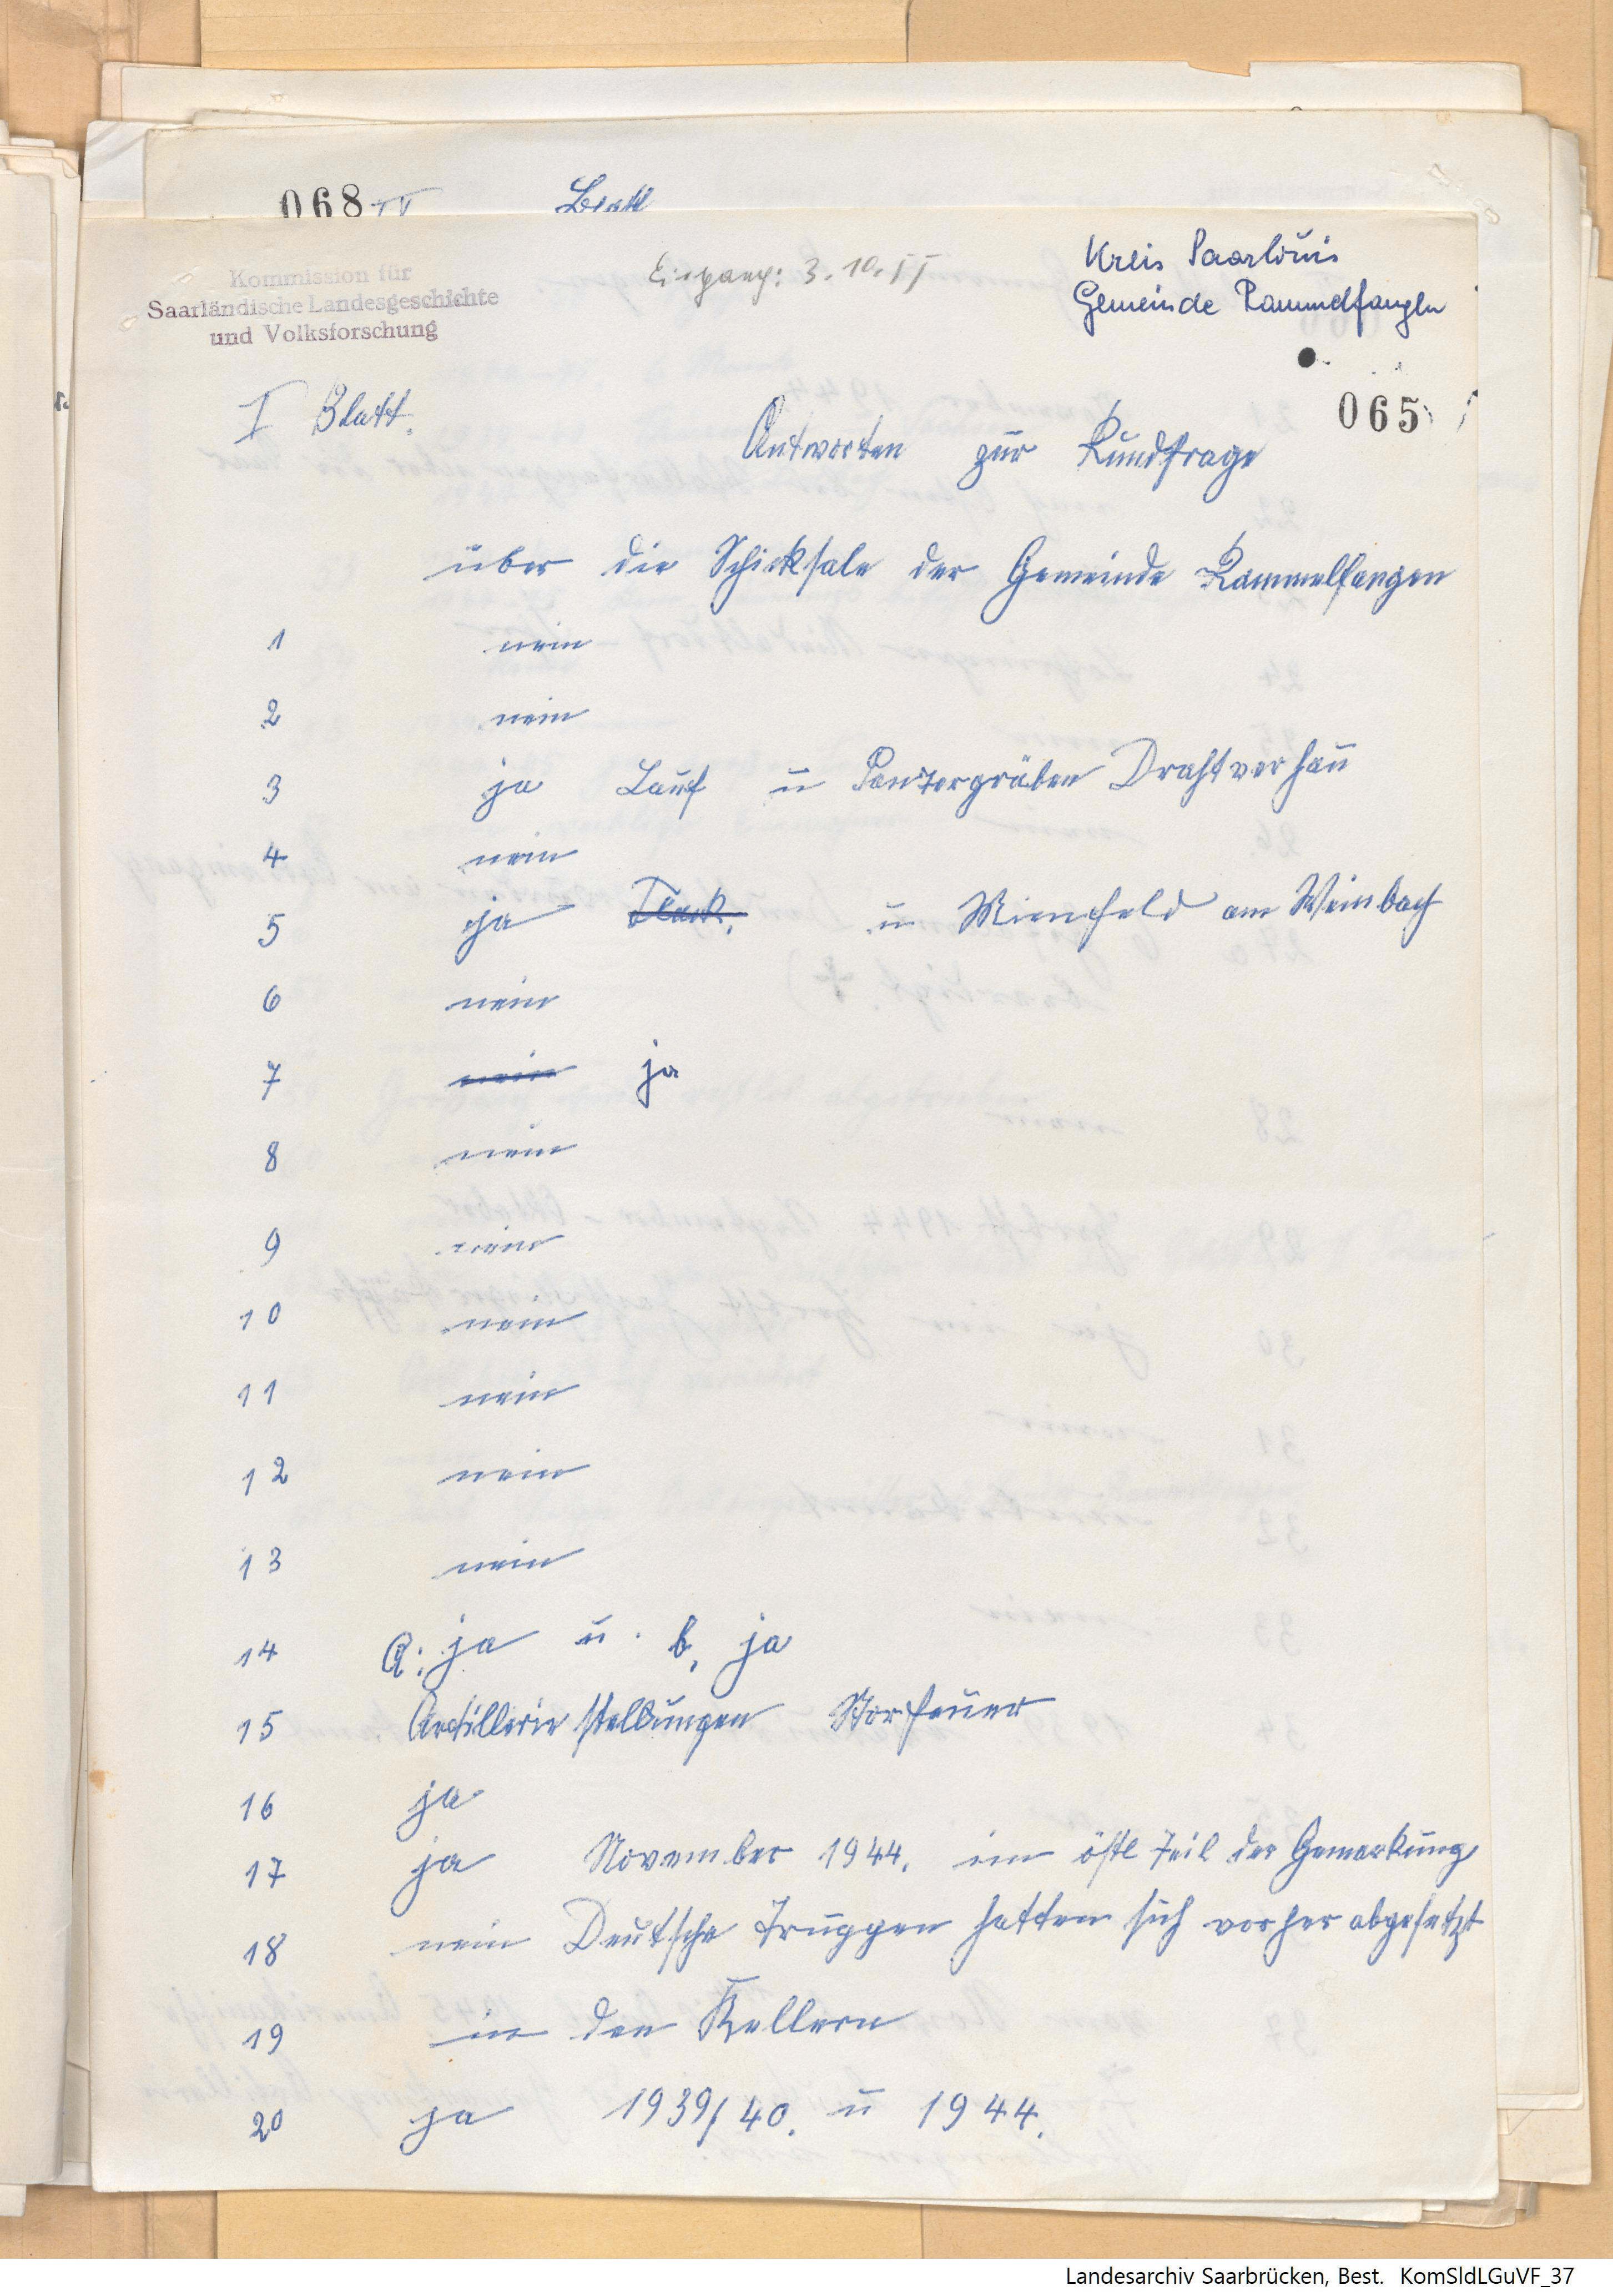 068 IV Blatt
Kommission für
Saarländische Landesgeschichte
und Volksforschung
Eingang: 3.10.55
Kreis Saarlouis
Gemeinde Rammelfangen
065
I Blatt.
Antworten zur Rundfrage
über die Schicksale der Gemeinde Rammelfangen
1 nein
2 nein
3 ja Lauf u Panzergräben Drahtverhau
4 nein
5 ja Flack. u Mienenfeld am Weinbach
6 nein
7 nein ja
8 nein
9 nein
10 nein
11 nein
12 nein
13 nein
14 a: ja u. b, ja
15 Artilleriestellungen Störfeuer
16 ja
17 ja November 1944. im östl Teil der Gemarkung
18 nein Deutsche Truppen hatten sich vorher abgesetzt
19 in den Kellern
20 ja 1939/40. u 1944.
Landesarchiv Saarbrücken, Best. KomSldLGuVF_37